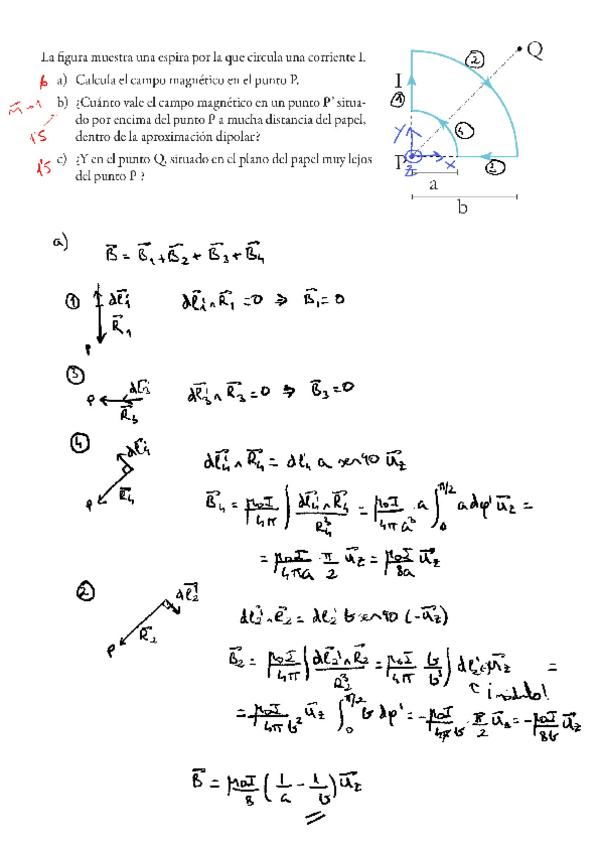 La figura muestra una espira por la que circula una corriente I.
6 a) Calcula el campo magnético en el punto P.
b) ¿Cuánto vale el campo magnético en un punto P' situa-
do por encima del punto P a mucha distancia del papel,
1'5 dentro de la aproximación dipolar?
1'5 c) ¿Y en el punto Q, situado en el plano del papel muy lejos
del punto P ?
Q
②
I
①
④
Y
P z x ②
a
b
a) B⃗ = B⃗₁ + B⃗₂ + B⃗₃ + B⃗₄
① dl⃗'₁ R⃗₁ P dl⃗'₁ ∧ R⃗₁ = 0 ⇒ B⃗₁ = 0
③ P dl⃗'₃ R⃗₃ dl⃗'₃ ∧ R⃗₃ = 0 ⇒ B⃗₃ = 0
④ dl⃗'₄ R⃗₄ P dl⃗'₄ ∧ R⃗₄ = dl'₄ a sen90 u⃗z
B⃗₄ = μ₀I/4π ∫ dl⃗'₄ ∧ R⃗₄ / R₄³ = μ₀I/4πa³ · a ∫₀^(π/2) a dφ' u⃗z =
= μ₀I/4πa · π/2 u⃗z = μ₀I/8a u⃗z
② dl⃗'₂ R⃗₂ P dl⃗'₂ ∧ R⃗₂ = dl'₂ b sen90 (-u⃗z)
B⃗₂ = μ₀I/4π ∫ dl⃗'₂ ∧ R⃗₂ / R₂³ = μ₀I/4π b/b³ ∫ dl'₂ u⃗z =
= -μ₀I/4πb² u⃗z ∫₀^(π/2) b dφ' = -μ₀I/4πb · π/2 u⃗z = -μ₀I/8b u⃗z
B⃗ = μ₀I/8 (1/a - 1/b) u⃗z